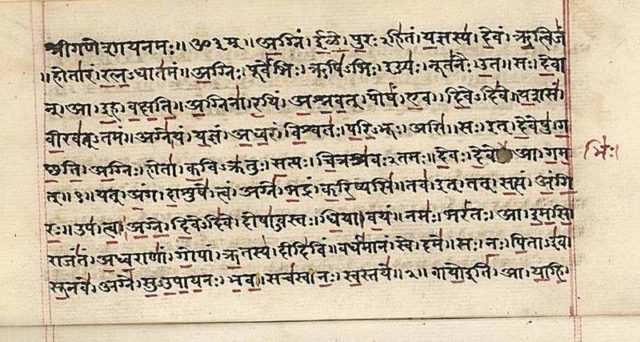 श्रीगणेशायनमः॥ॐ३म्॥अग्निं।ईळे।पुरःऽहितं।यज्ञस्य।देवं।ऋत्विजं
॥होतारं।रत्नऽधातमं॥अग्निः।पूर्वेभिः।ऋषिऽभिः।ईड्यः।नूतनैः।उत।सः।देवा
न्।आ।इह।वक्षति॥अग्निना।रयिं।अश्नवत्।पोषं।एव।दिवेऽदिवे।यशसं
वीरवत्ऽतमं॥अग्ने।यं।यज्ञं।अध्वरं।विश्वतः।परिऽभूः।असि।सः।इत्।देवेषु।ग
च्छति॥अग्निः।होता।कविऽक्रतुः।सत्यः।चित्रश्रवःऽतमः॥देवः।देवे आ।गम भिः।
त्॥१॥यत्।अंग।दाशुषे।त्वं।अग्ने।भद्रं।करिष्यसि।तव।इत्।तत्।सत्यं।अंगि
रः॥उप।त्वा।अग्ने।दिवेऽदिवे।दोषाऽवस्तः।धिया।वयं।नमः।भरंतः।आ।इमसि
राजंतं।अध्वराणां।गोपां।ऋतस्य।दीदिविं।वर्धमानं।स्वे।दमे॥सः।नः।पिताऽइव
सूनवे।अग्ने।सुऽउपायनः।भव॥सचस्व।नः।स्वस्तये॥२॥वायोइति।आ।याहि।